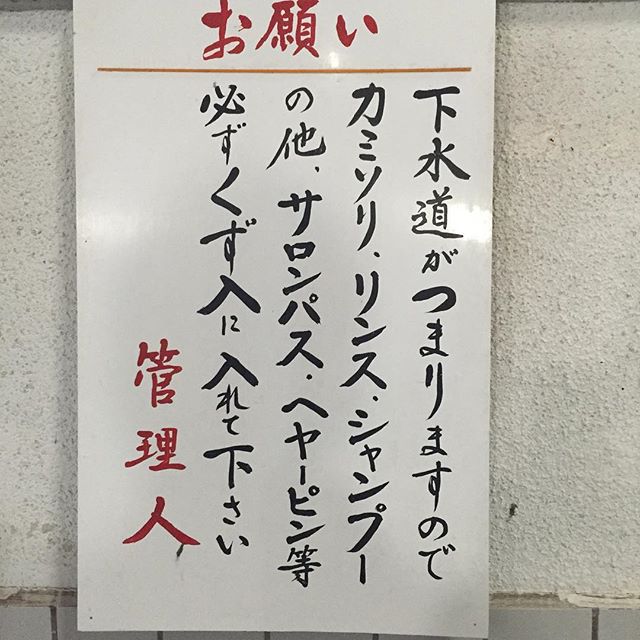 お願い
下水道がつまりますので
カミソリ、リンス、シャンプー
の他、サロンパス・ヘヤーピン等
必ずくず入に入れて下さい
管理人